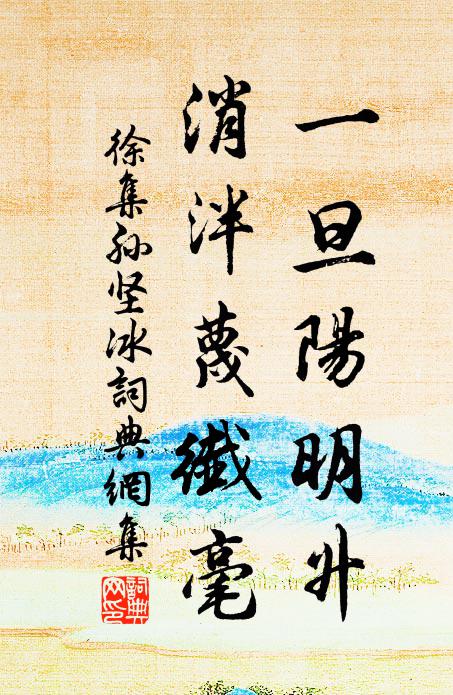 一旦陽明升
消泮蔑纖毫
徐集孙坚冰詞典網集
詞典網印